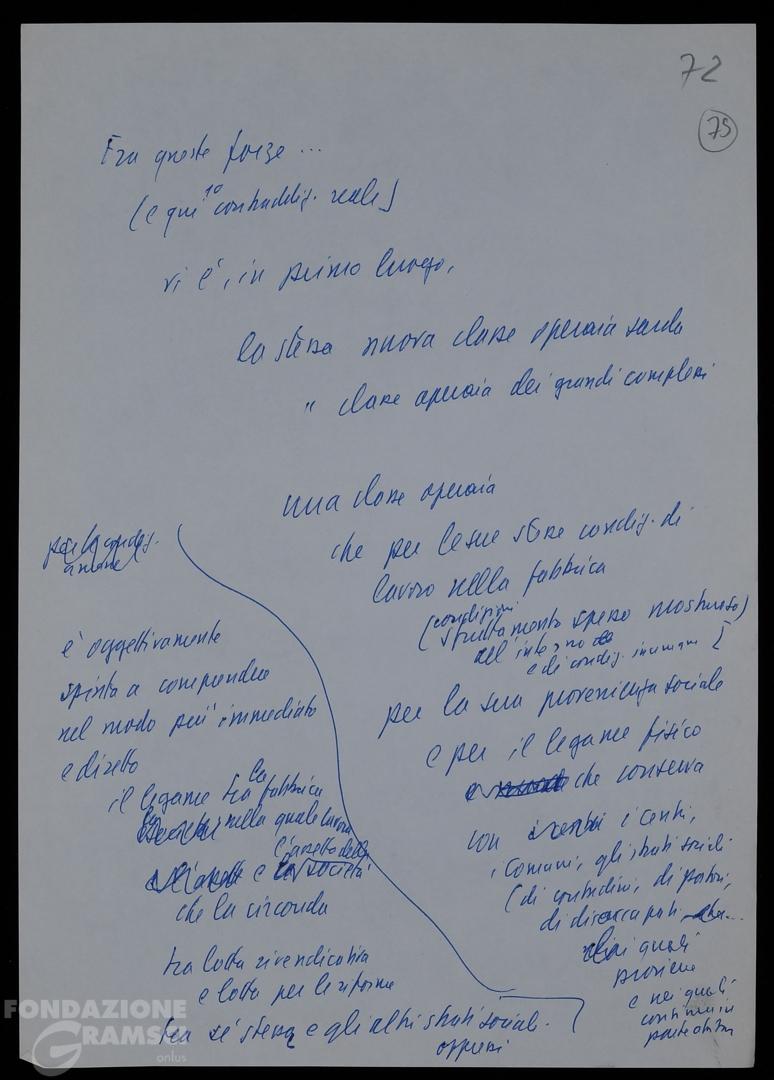 72
75
Fra queste forze ...
(e qui 1º contraddiz. reale)
vi è, in primo luogo,
la stessa nuova classe operaia sarda
" classe operaia dei grandi complessi
una classe operaia
che per le sue stesse condiz. di
lavoro nella fabbrica
(condizioni
sfruttamento spesso mostruoso)
nell'interno
e di condiz. inumane
per la sua provenienza sociale
e per il legame fisico
che conserva
con i centri,
i comuni, gli strati sociali
(di contadini, di pastori,
di disoccupati
dai quali
proviene
e nei quali
continua in
parte
è oggettivamente
spinta a comprendere
nel modo più immediato
e diretto
il legame tra la fabbrica
nella quale lavora
e l'assetto della
società
che la circonda
tra lotta rivendicativa
e lotta per le riforme
tra se stessa e gli altri strati sociali
oppressi
FONDAZIONE
GRAMSCI
onlus